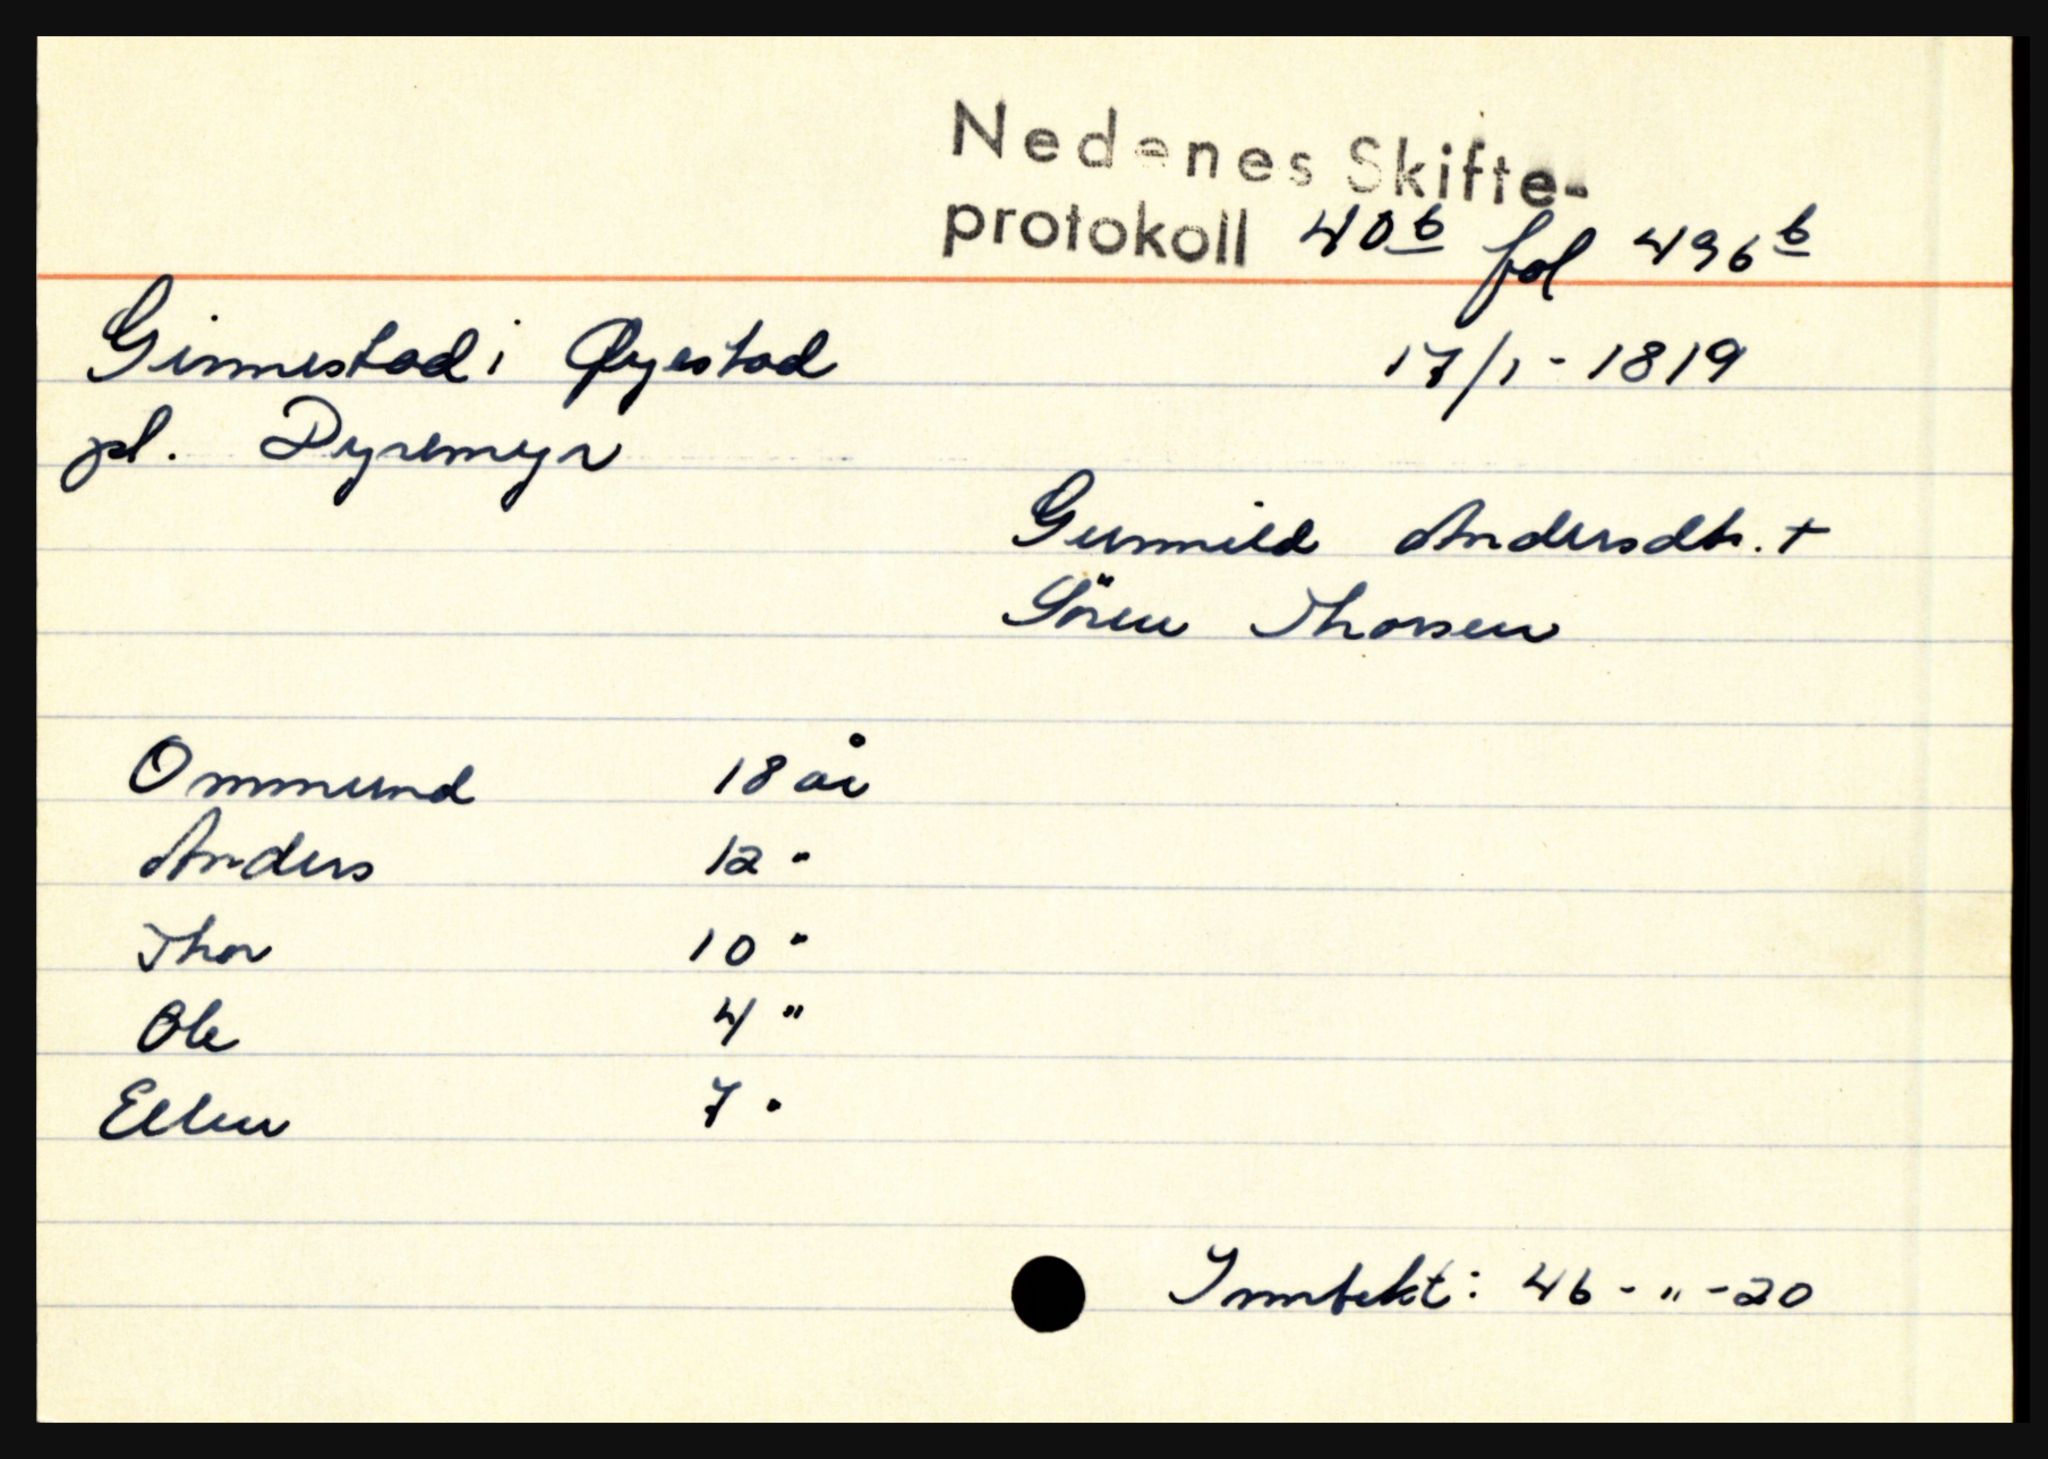 Nedenes Skifte-
protokoll 40b fol 496b
Ginnestad i Øyestad 17/1 - 1819
pl. Dyremyr
Gunnild Andersdtr. +
Sören Thorsen
Ommund 18 år
Anders 12 "
Thor 10 "
Ole 4 "
Ellen 7 "
Inntekt: 46 - " - 20